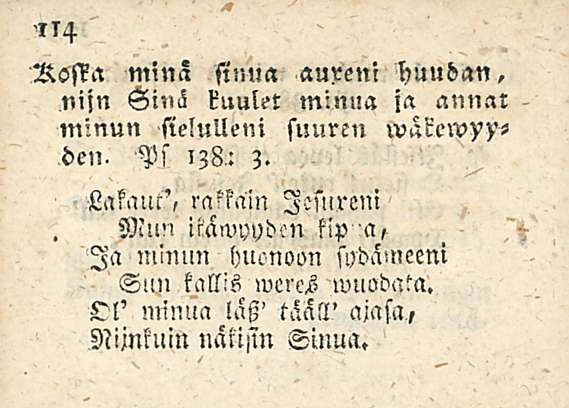 114
Koska minä sinua auxeni huudan,
nijn Sinä kuulet minua ja annat
minun sielulleni suuren wäkewyy⸗
den. Ps 138: 3.
Lakaut', rakkain Jesuxeni
Mun ikäwyyden
Ja minun huonoon sydämeeni
Sun kallis weres wuodata.
Ol' minua läß' tääll' ajasa,
Nijnkuin näkisin Sinua.